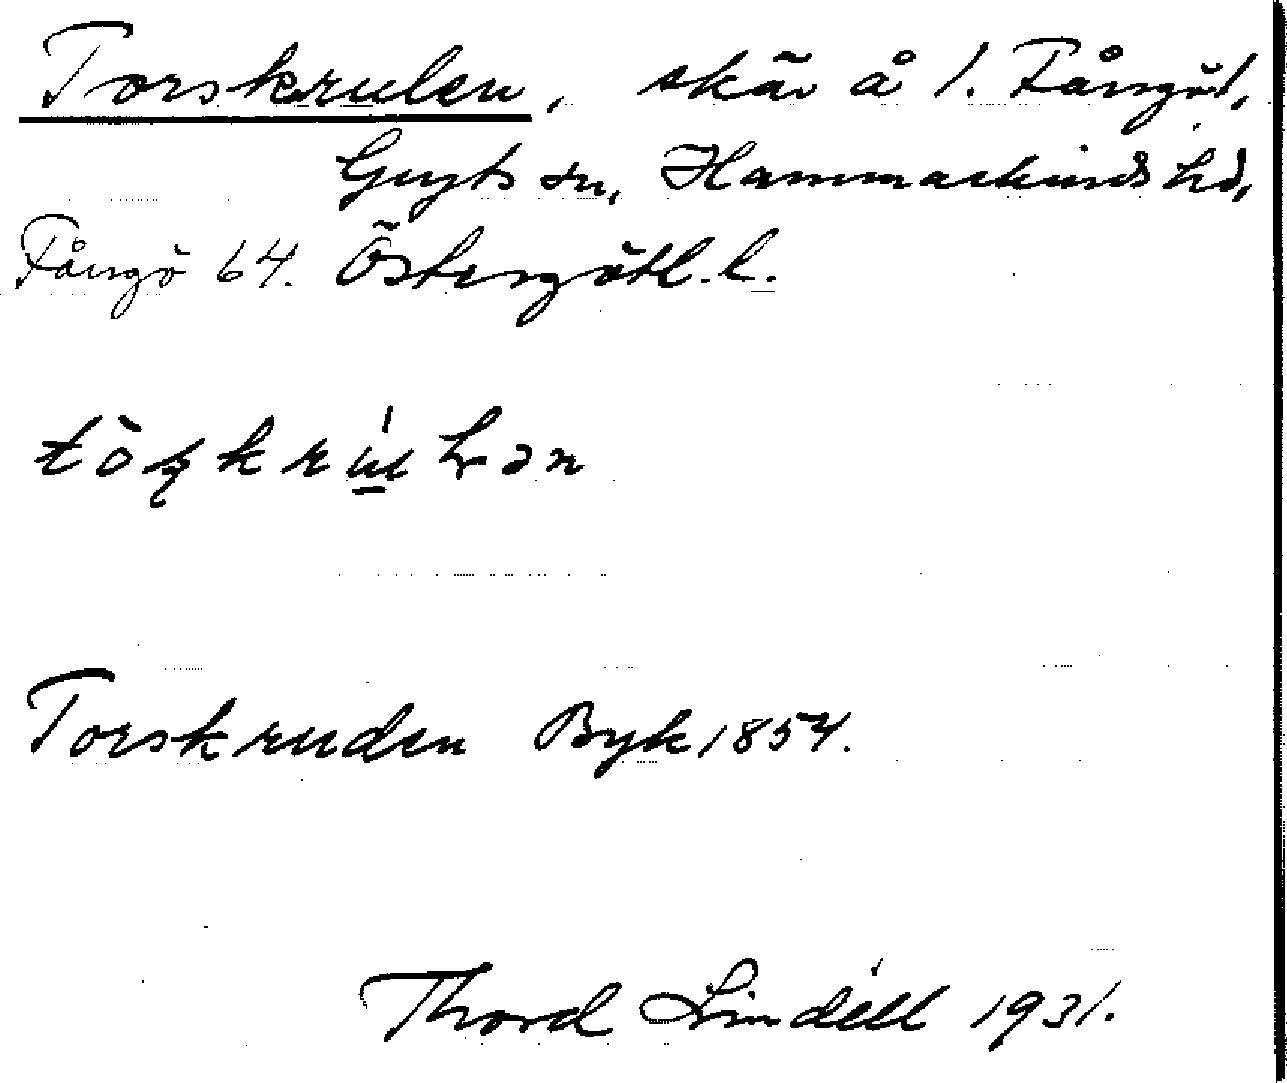 Torskrulen, skär å 1. Fångö 1,
Gryts sn, Hammarkinds hd,
Fångö 64. Östergötl. l.
Torskruden Byk 1854.
Thord Lindéll 1931.